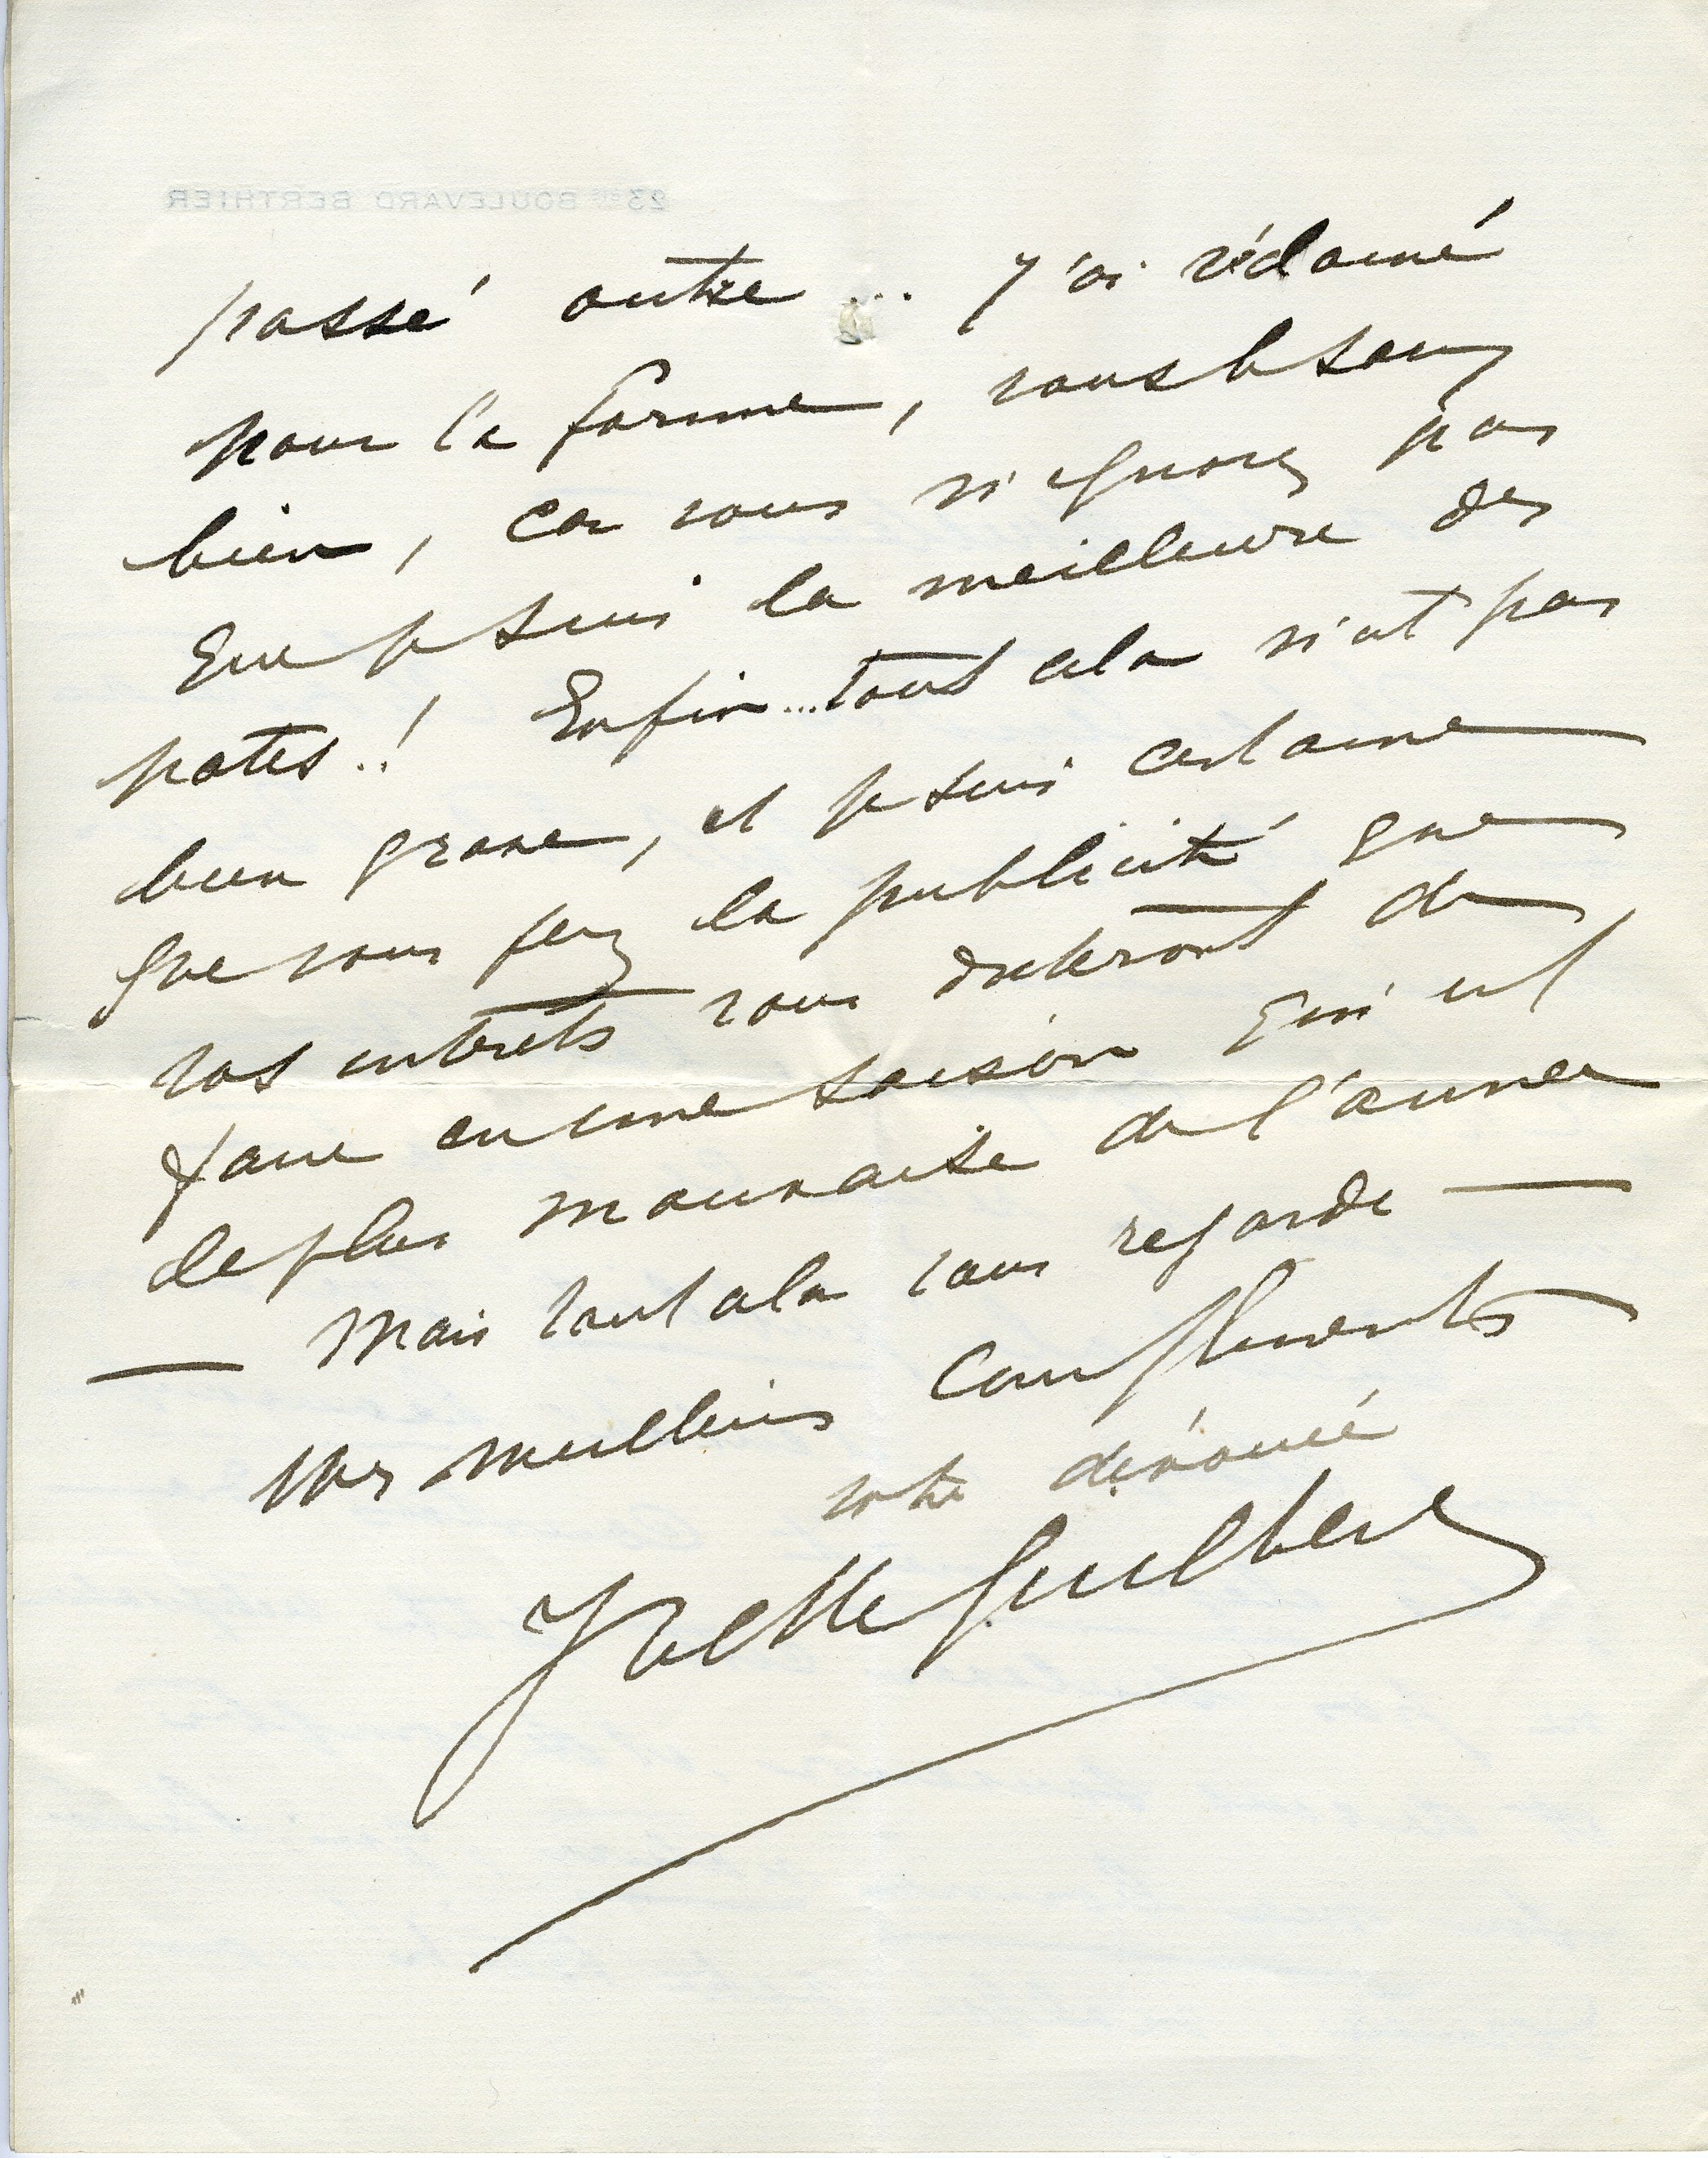 23 BOULEVARD BERTHIER
passé outre ... J'ai réclamé
pour la forme, vous le savez
bien, car vous n'ignorez pas
que je suis la meilleure des
pates..! Enfin...tout cela n'est pas
bien grave, et je suis certaine
que vous ferez la publicité que
vos intérêts vous dicteront de
faire en une saison qui est
la plus mauvaise de l'année
— Mais tout cela vous regarde —
Mes meilleurs compliments
votre dévouée
Yvette Guilbert